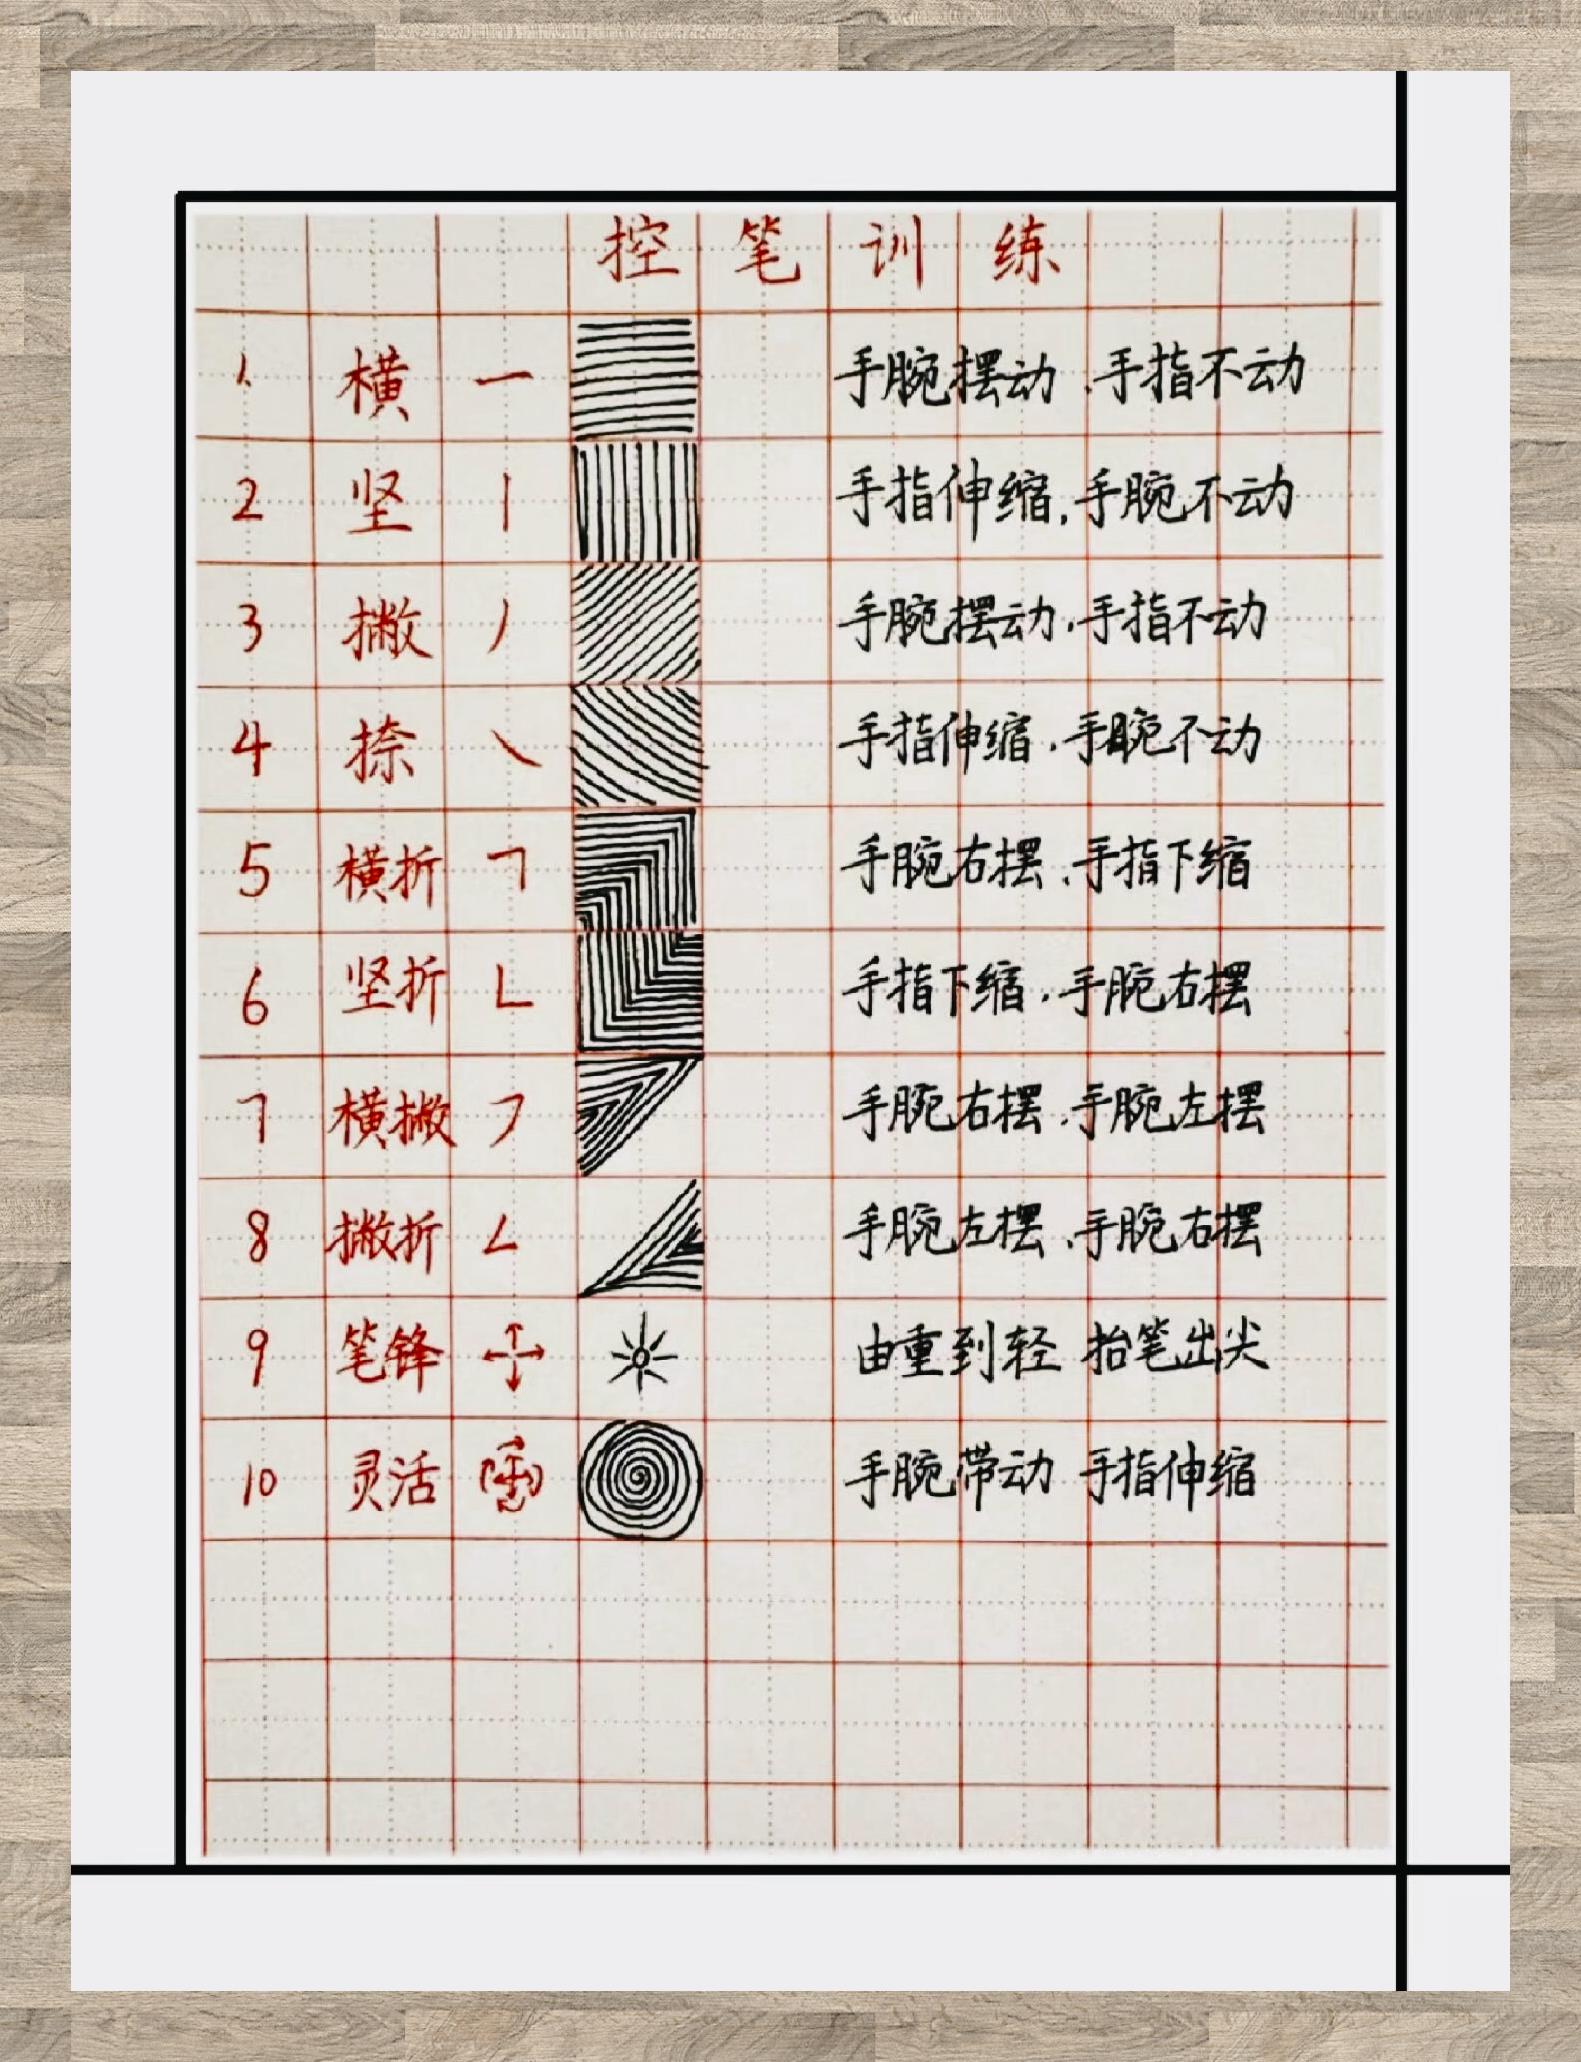 控笔训练
1、 横 一 手腕摆动、手指不动
2 坚 丨 手指伸缩,手腕不动
3 撇 丿 手腕摆动,手指不动
4 捺 ㇏ 手指伸缩,手腕不动
5 横折 ㇕ 手腕右摆、手指下缩
6 坚折 ㇗ 手指下缩,手腕右摆
7 横撇 ㇇ 手腕右摆、手腕左摆
8 撇折 ㇜ 手腕左摆、手腕右摆
9 笔锋 由重到轻 抬笔出尖
10 灵活 手腕带动 手指伸缩